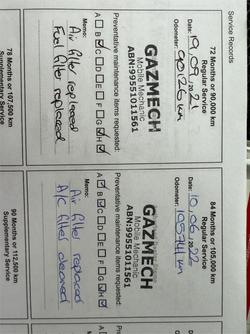 Service Records
72 Months or 90,000 km
Regular Service
Date: 19, 09, 2021
Odometer: 90126 km
GAZMECH
Mobile Mechanic
ABN:99551011561
Preventative maintenance items requested:
A B C D E F G H
Memo:
Air filter replaced
Fuel filter replaced
78 Months or 107,500 km
Supplementary Service
84 Months or 105,000 km
Regular Service
Date: 10, 06, 2022
Odometer: 105741 km
GAZMECH
Mobile Mechanic
ABN:99551011561
Preventative maintenance items requested:
A B C D E F G H
Memo:
Air filter replaced
A/C filter cleaned
90 Months or 112,500 km
Supplementary Service